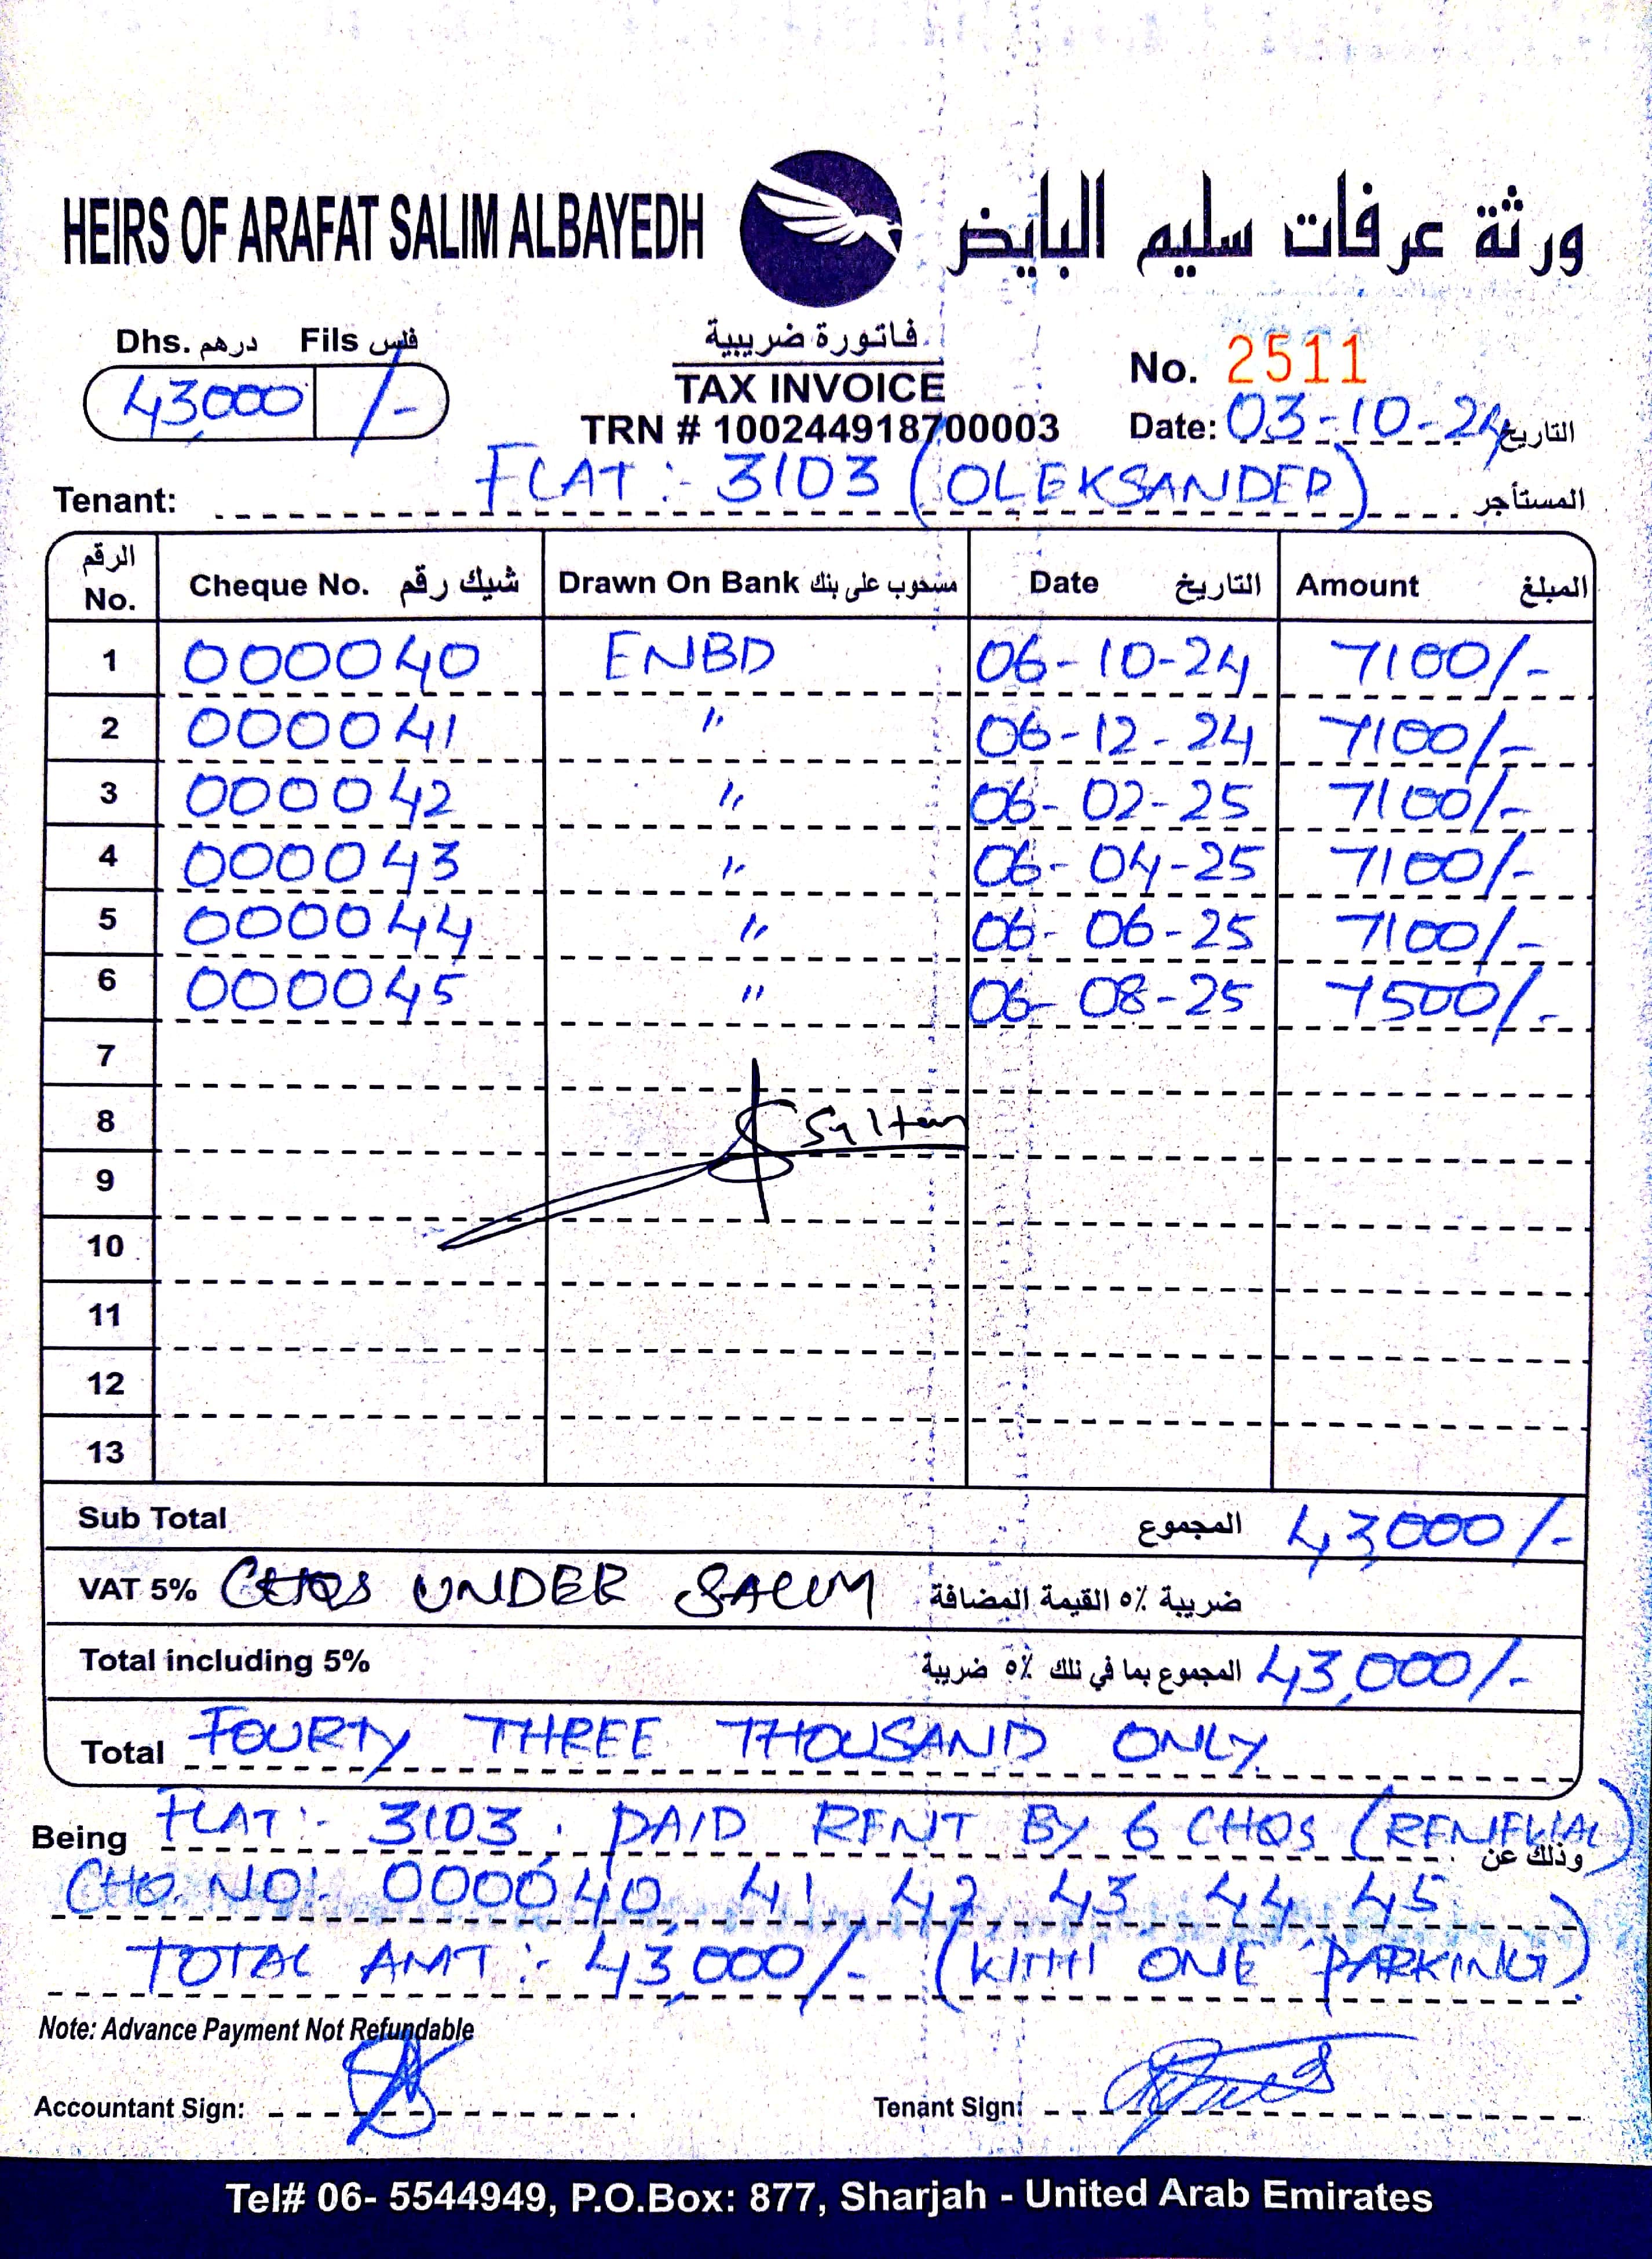 HEIRS OF ARAFAT SALIM ALBAYEDH ورثة عرفات سليم البايض
Dhs. درهم Fils فلس
43,000 /-
فاتورة ضريبية
TAX INVOICE
TRN # 100244918700003
No. 2511
Date: 03-10-24 التاريخ
Tenant: FLAT:- 3103 (OLEKSANDER) المستأجر
الرقم No. Cheque No. شيك رقم Drawn On Bank مسحوب على بنك Date التاريخ Amount المبلغ
1 000040 ENBD 06-10-24 7100/-
2 000041 " 06-12-24 7100/-
3 000042 " 06-02-25 7100/-
4 000043 " 06-04-25 7100/-
5 000044 " 06-06-25 7100/-
6 000045 " 06-08-25 7500/-
7
8 Sultan
9
10
11
12
13
Sub Total المجموع 43,000/-
VAT 5% CHQS UNDER SALIM ضريبة ٥٪ القيمة المضافة
Total including 5% المجموع بما في ذلك ٥٪ ضريبة 43,000/-
Total FOURTY THREE THOUSAND ONLY
Being FLAT:- 3103. PAID RENT BY 6 CHQS (RENEWAL) وذلك عن
CHQ. NO:. 000040, 41, 42, 43, 44, 45
TOTAL AMT:- 43,000/- (WITH ONE PARKING)
Note: Advance Payment Not Refundable
Accountant Sign: Tenant Sign:
Tel# 06- 5544949, P.O.Box: 877, Sharjah - United Arab Emirates